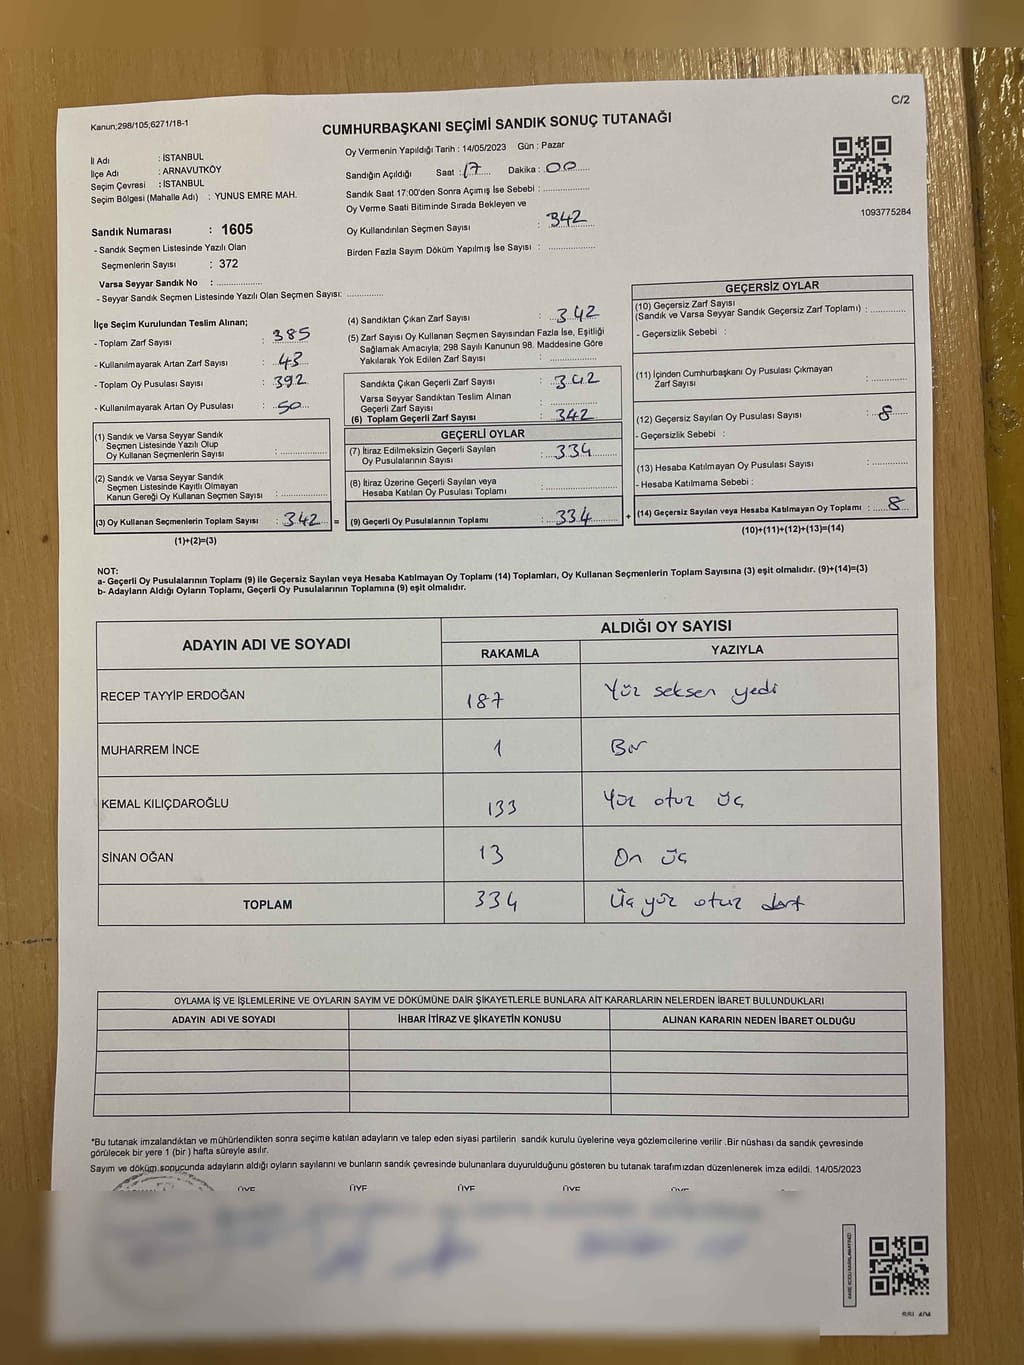 Kanun;298/105;6271/18-1
C/2
CUMHURBAŞKANI SEÇİMİ SANDIK SONUÇ TUTANAĞI
İl Adı : İSTANBUL
İlçe Adı : ARNAVUTKÖY
Seçim Çevresi : İSTANBUL
Seçim Bölgesi (Mahalle Adı) : YUNUS EMRE MAH.
Sandık Numarası : 1605
- Sandık Seçmen Listesinde Yazılı Olan
Seçmenlerin Sayısı : 372
Varsa Seyyar Sandık No : ..................
- Seyyar Sandık Seçmen Listesinde Yazılı Olan Seçmen Sayısı: ..............
Oy Vermenin Yapıldığı Tarih : 14/05/2023 Gün : Pazar
Sandığın Açıldığı Saat : 17 Dakika : 00
Sandık Saat 17:00'den Sonra Açımış İse Sebebi : ..................
Oy Verme Saati Bitiminde Sırada Bekleyen ve
Oy Kullandırılan Seçmen Sayısı : 342
Birden Fazla Sayım Döküm Yapılmış İse Sayısı : ..................
1093775284
İlçe Seçim Kurulundan Teslim Alınan;
- Toplam Zarf Sayısı : 385
- Kullanılmayarak Artan Zarf Sayısı : 43
- Toplam Oy Pusulası Sayısı : 392
- Kullanılmayarak Artan Oy Pusulası : 50
(1) Sandık ve Varsa Seyyar Sandık
Seçmen Listesinde Yazılı Olup
Oy Kullanan Seçmenlerin Sayısı : ..................
(2) Sandık ve Varsa Seyyar Sandık
Seçmen Listesinde Kayıtlı Olmayan
Kanun Gereği Oy Kullanan Seçmen Sayısı : ..................
(3) Oy Kullanan Seçmenlerin Toplam Sayısı : 342 =
(1)+(2)=(3)
(4) Sandıktan Çıkan Zarf Sayısı : 342
(5) Zarf Sayısı Oy Kullanan Seçmen Sayısından Fazla İse, Eşitliği
Sağlamak Amacıyla; 298 Sayılı Kanunun 98. Maddesine Göre
Yakılarak Yok Edilen Zarf Sayısı : ..................
Sandıkta Çıkan Geçerli Zarf Sayısı : 342
Varsa Seyyar Sandıktan Teslim Alınan
Geçerli Zarf Sayısı : ..................
(6) Toplam Geçerli Zarf Sayısı : 342
GEÇERLİ OYLAR
(7) İtiraz Edilmeksizin Geçerli Sayılan
Oy Pusulalarının Sayısı : 334
(8) İtiraz Üzerine Geçerli Sayılan veya
Hesaba Katılan Oy Pusulası Toplamı : ..................
(9) Geçerli Oy Pusulalarının Toplamı : 334 +
GEÇERSİZ OYLAR
(10) Geçersiz Zarf Sayısı
(Sandık ve Varsa Seyyar Sandık Geçersiz Zarf Toplamı) : ..............
- Geçersizlik Sebebi :
(11) İçinden Cumhurbaşkanı Oy Pusulası Çıkmayan
Zarf Sayısı : ..............
(12) Geçersiz Sayılan Oy Pusulası Sayısı : 8
- Geçersizlik Sebebi :
(13) Hesaba Katılmayan Oy Pusulası Sayısı : ..............
- Hesaba Katılmama Sebebi :
(14) Geçersiz Sayılan veya Hesaba Katılmayan Oy Toplamı : 8
(10)+(11)+(12)+(13)=(14)
NOT:
a- Geçerli Oy Pusulalarının Toplamı (9) ile Geçersiz Sayılan veya Hesaba Katılmayan Oy Toplamı (14) Toplamları, Oy Kullanan Seçmenlerin Toplam Sayısına (3) eşit olmalıdır. (9)+(14)=(3)
b- Adayların Aldığı Oyların Toplamı, Geçerli Oy Pusulalarının Toplamına (9) eşit olmalıdır.
ADAYIN ADI VE SOYADI
ALDIĞI OY SAYISI
RAKAMLA YAZIYLA
RECEP TAYYİP ERDOĞAN 187 Yüz seksen yedi
MUHARREM İNCE 1 Bir
KEMAL KILIÇDAROĞLU 133 Yüz otuz üç
SİNAN OĞAN 13 On üç
TOPLAM 334 Üç yüz otuz dört
OYLAMA İŞ VE İŞLEMLERİNE VE OYLARIN SAYIM VE DÖKÜMÜNE DAİR ŞİKAYETLERLE BUNLARA AİT KARARLARIN NELERDEN İBARET BULUNDUKLARI
ADAYIN ADI VE SOYADI İHBAR İTİRAZ VE ŞİKAYETİN KONUSU ALINAN KARARIN NEDEN İBARET OLDUĞU
*Bu tutanak imzalandıktan ve mühürlendikten sonra seçime katılan adayların ve talep eden siyasi partilerin sandık kurulu üyelerine veya gözlemcilerine verilir .Bir nüshası da sandık çevresinde
görülecek bir yere 1 (bir ) hafta süreyle asılır.
Sayım ve döküm sonucunda adayların aldığı oyların sayılarını ve bunların sandık çevresinde bulunanlara duyurulduğunu gösteren bu tutanak tarafımızdan düzenlenerek imza edildi. 14/05/2023
ÜYE ÜYE ÜYE ÜYE ÜYE